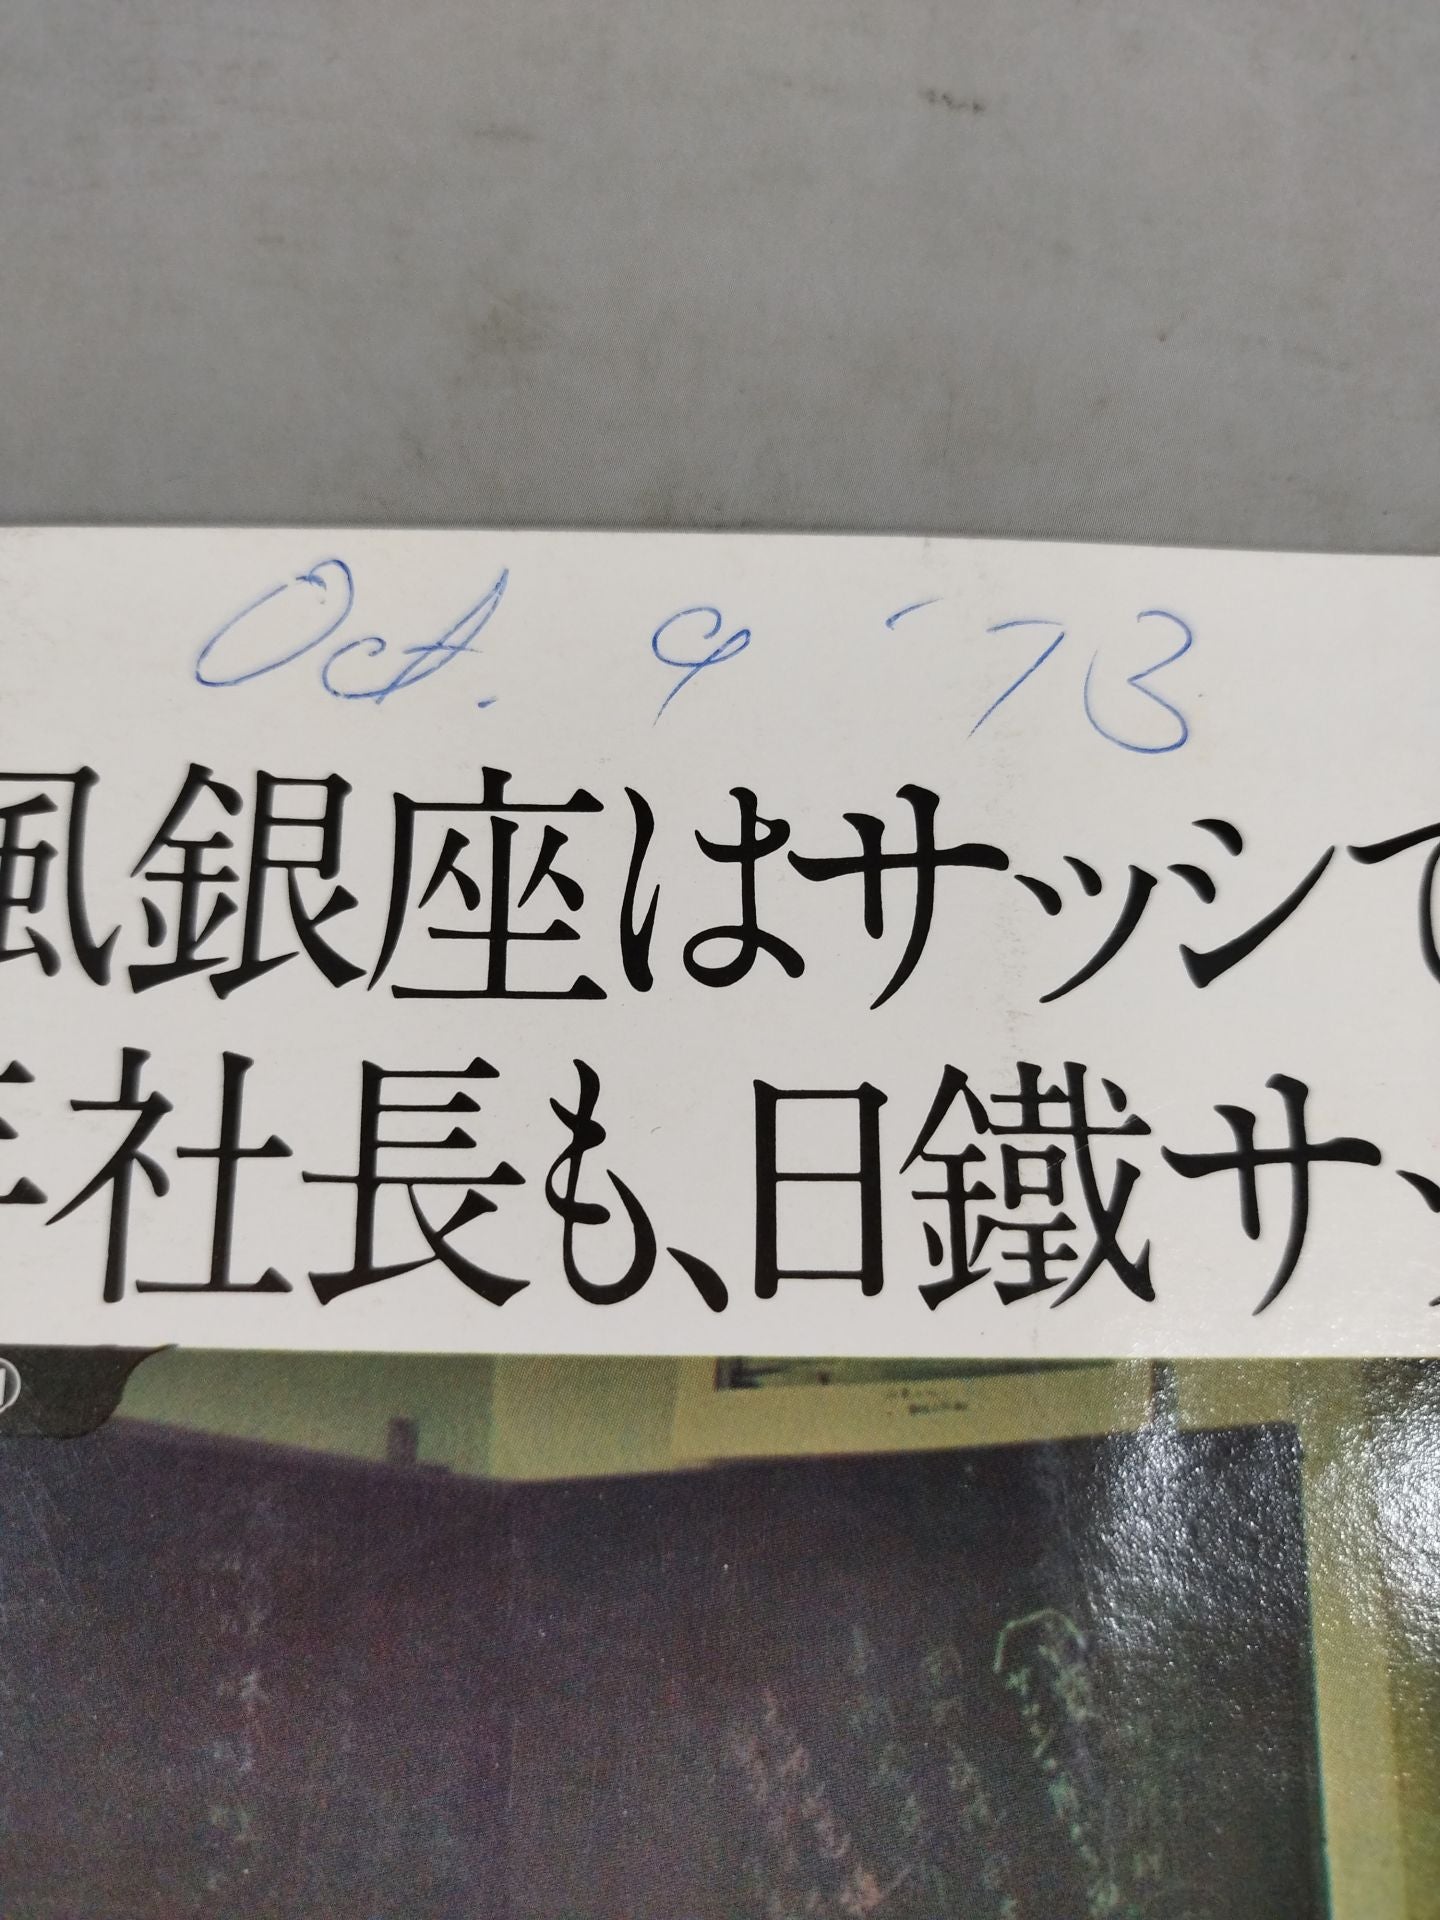 Oct. 9 '73
風銀座はサッシで
社長も、日鐵サッ